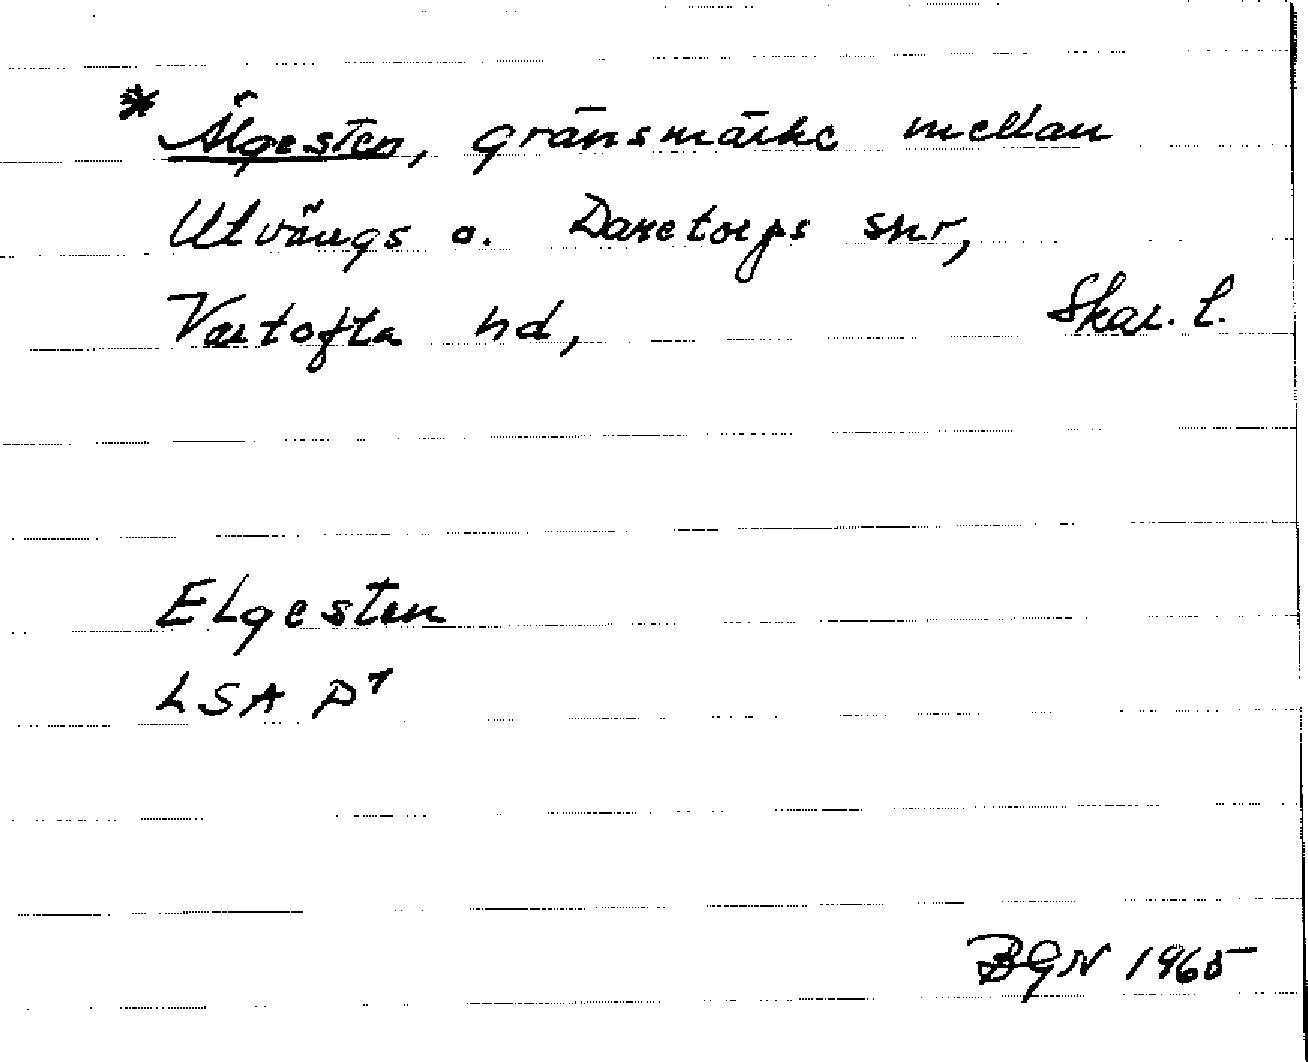 * Älgesten, gränsmärke mellan
Utvängs o. Daretorps snr,
Vartofta hd, Skar. l.
Elgesten
LSA P7
BGN 1965